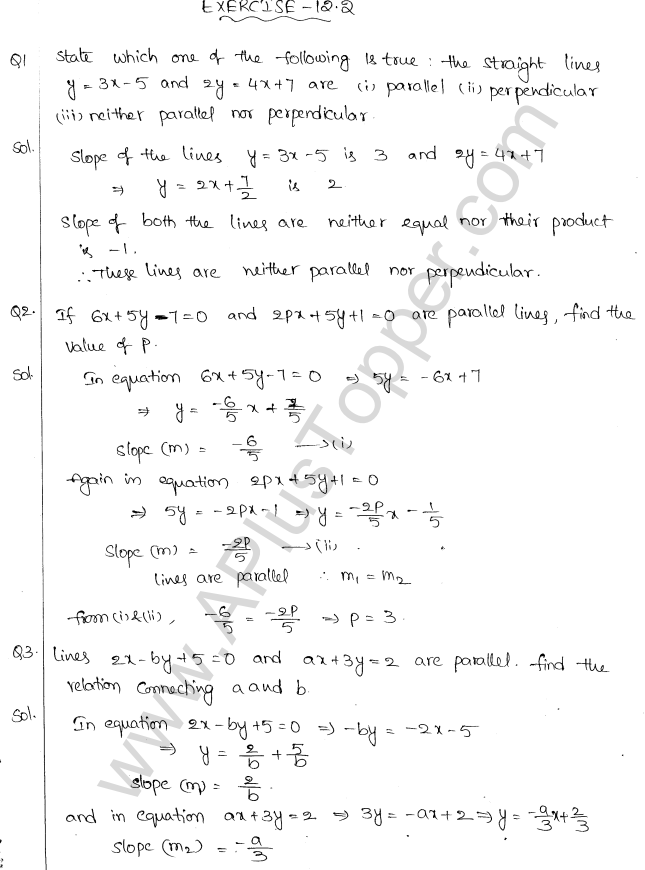 EXERCISE - 12.2
Q1 State which one of the following is true : the straight lines
y = 3x - 5 and 2y = 4x + 7 are (i) parallel (ii) perpendicular
(iii) neither parallel nor perpendicular.
Sol. Slope of the lines y = 3x - 5 is 3 and 2y = 4x + 7
⇒ y = 2x + 7/2 is 2
Slope of both the lines are neither equal nor their product
is -1.
∴ These lines are neither parallel nor perpendicular.
Q2. If 6x + 5y - 7 = 0 and 2px + 5y + 1 = 0 are parallel lines, find the
value of P.
Sol. In equation 6x + 5y - 7 = 0 ⇒ 5y = -6x + 7
⇒ y = -6/5 x + 7/5
slope (m) = -6/5 → (i)
Again in equation 2px + 5y + 1 = 0
⇒ 5y = -2px - 1 ⇒ y = -2p/5 x - 1/5
Slope (m) = -2p/5 → (ii)
lines are parallel ∴ m₁ = m₂
from (i) & (ii), -6/5 = -2p/5 ⇒ p = 3.
Q3. lines 2x - by + 5 = 0 and ax + 3y = 2 are parallel. find the
relation connecting a and b.
Sol. In equation 2x - by + 5 = 0 ⇒ -by = -2x - 5
⇒ y = 2/b + 5/b
slope (m) = 2/b.
and in equation ax + 3y = 2 ⇒ 3y = -ax + 2 ⇒ y = -a/3 x + 2/3
slope (m₂) = -a/3
www.APlusTopper.com